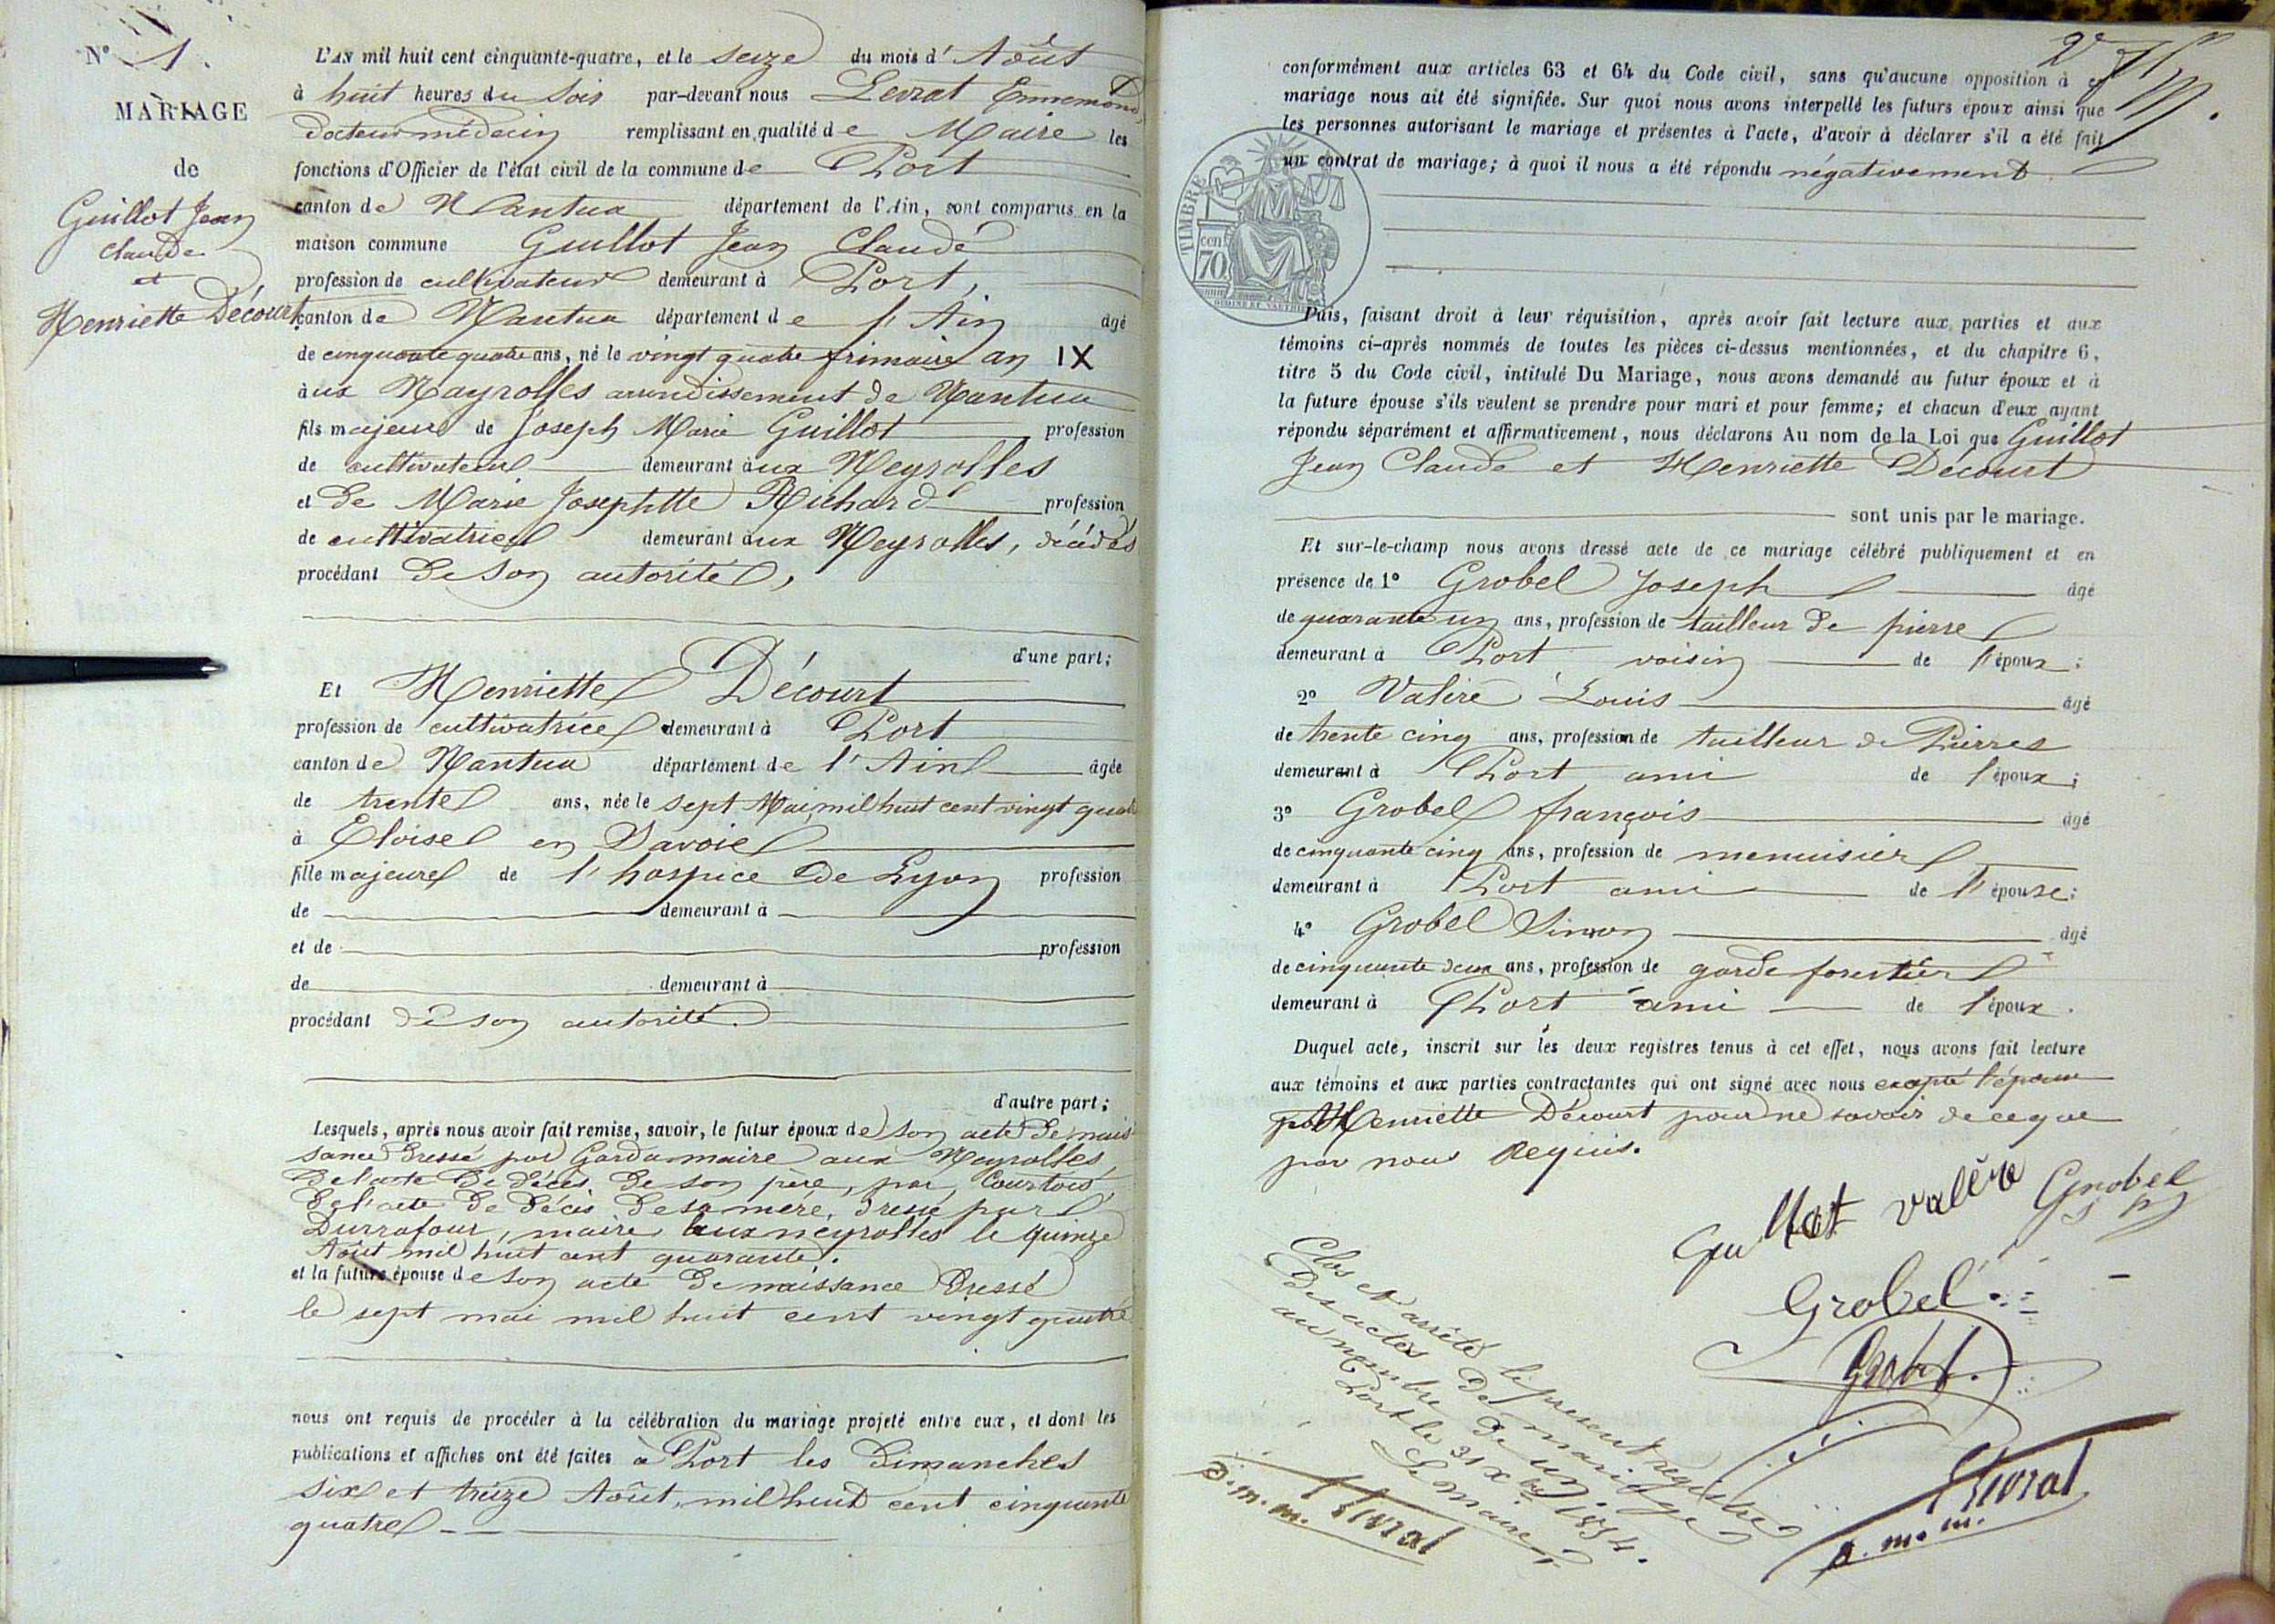 N° 1.
MARIAGE
de
Guillot Jean
Claude
et
Henriette Décourt
L'AN mil huit cent cinquante-quatre, et le seize du mois d'Août
à huit heures du Soir par-devant nous Levrat Ennemond
docteur médecin remplissant en qualité de Maire les
fonctions d'Officier de l'état civil de la commune de Port
canton de Nantua département de l'Ain, sont comparus en la
maison commune Guillot Jean Claude
profession de cultivateur demeurant à Port,
canton de Nantua département de l'Ain âgé
de cinquante quatre ans, né le vingt quatre frimaire an IX
aux Nayrolles arrondissement de Nantua
fils majeur de Joseph Marie Guillot profession
de cultivateur demeurant aux Neyrolles
et de Marie Josephtte Richard profession
de cultivatrice demeurant aux Neyrolles, décédés
procédant de son autorité,
d'une part;
Et Henriette Décourt
profession de cultivatrice demeurant à Port
canton de Nantua département de l'Ain âgée
de trente ans, née le sept Mai mil huit cent vingt quatre
à Eloise en Savoie
fille majeure de l'hospice de Lyon profession
de demeurant à
et de profession
de demeurant à
procédant de son autorité.
d'autre part;
Lesquels, après nous avoir fait remise, savoir, le futur époux de son acte de nais
sance dressé par Gardu maire aux Neyrolles,
de l'acte de décès de son père, par Courtois,
de l'acte de décès de sa mère, dressé par
Durrafour, maire aux neyrolles le quinze
Août mil huit cent quarante.
et la future épouse de son acte de naissance dressé
le sept mai mil huit cent vingt quatre
nous ont requis de procéder à la célébration du mariage projeté entre eux, et dont les
publications et affiches ont été faites à Port les Dimanches
six et treize Août, mil huit cent cinquante
quatre
conformément aux articles 63 et 64 du Code civil, sans qu'aucune opposition à ce
mariage nous ait été signifiée. Sur quoi nous avons interpellé les futurs époux ainsi que
les personnes autorisant le mariage et présentes à l'acte, d'avoir à déclarer s'il a été fait
un contrat de mariage; à quoi il nous a été répondu négativement
TIMBRE
cen
70
Puis, faisant droit à leur réquisition, après avoir fait lecture aux parties et aux
témoins ci-après nommés de toutes les pièces ci-dessus mentionnées, et du chapitre 6,
titre 5 du Code civil, intitulé Du Mariage, nous avons demandé au futur époux et à
la future épouse s'ils veulent se prendre pour mari et pour femme; et chacun d'eux ayant
répondu séparément et affirmativement, nous déclarons Au nom de la Loi que Guillot
Jean Claude et Henriette Décourt
sont unis par le mariage.
Et sur-le-champ nous avons dressé acte de ce mariage célébré publiquement et en
présence de 1° Grobel Joseph âgé
de quarante un ans, profession de tailleur de pierre
demeurant à Port voisin de l'époux;
2° Valire Louis âgé
de trente cinq ans, profession de tailleur de Pierres
demeurant à Port ami de l'époux;
3° Grobel françois âgé
de cinquante cinq ans, profession de menuisier
demeurant à Port ami de l'épouse;
4° Grobel Simon âgé
de cinquante deux ans, profession de garde forestier
demeurant à Port ami de l'époux.
Duquel acte, inscrit sur les deux registres tenus à cet effet, nous avons fait lecture
aux témoins et aux parties contractantes qui ont signé avec nous excepté l'épouse
Henriette Décourt pour ne savoir de ce que
par nous Requis.
Guillot valére Grobel
Grobel
Grobel.
E Levrat
d. m. m.
Clos et arrêté le présent registre
des actes de mariage
au nombre de un
Port le 31 Xbre 1854.
Le maire
E Levrat
D. m. m.